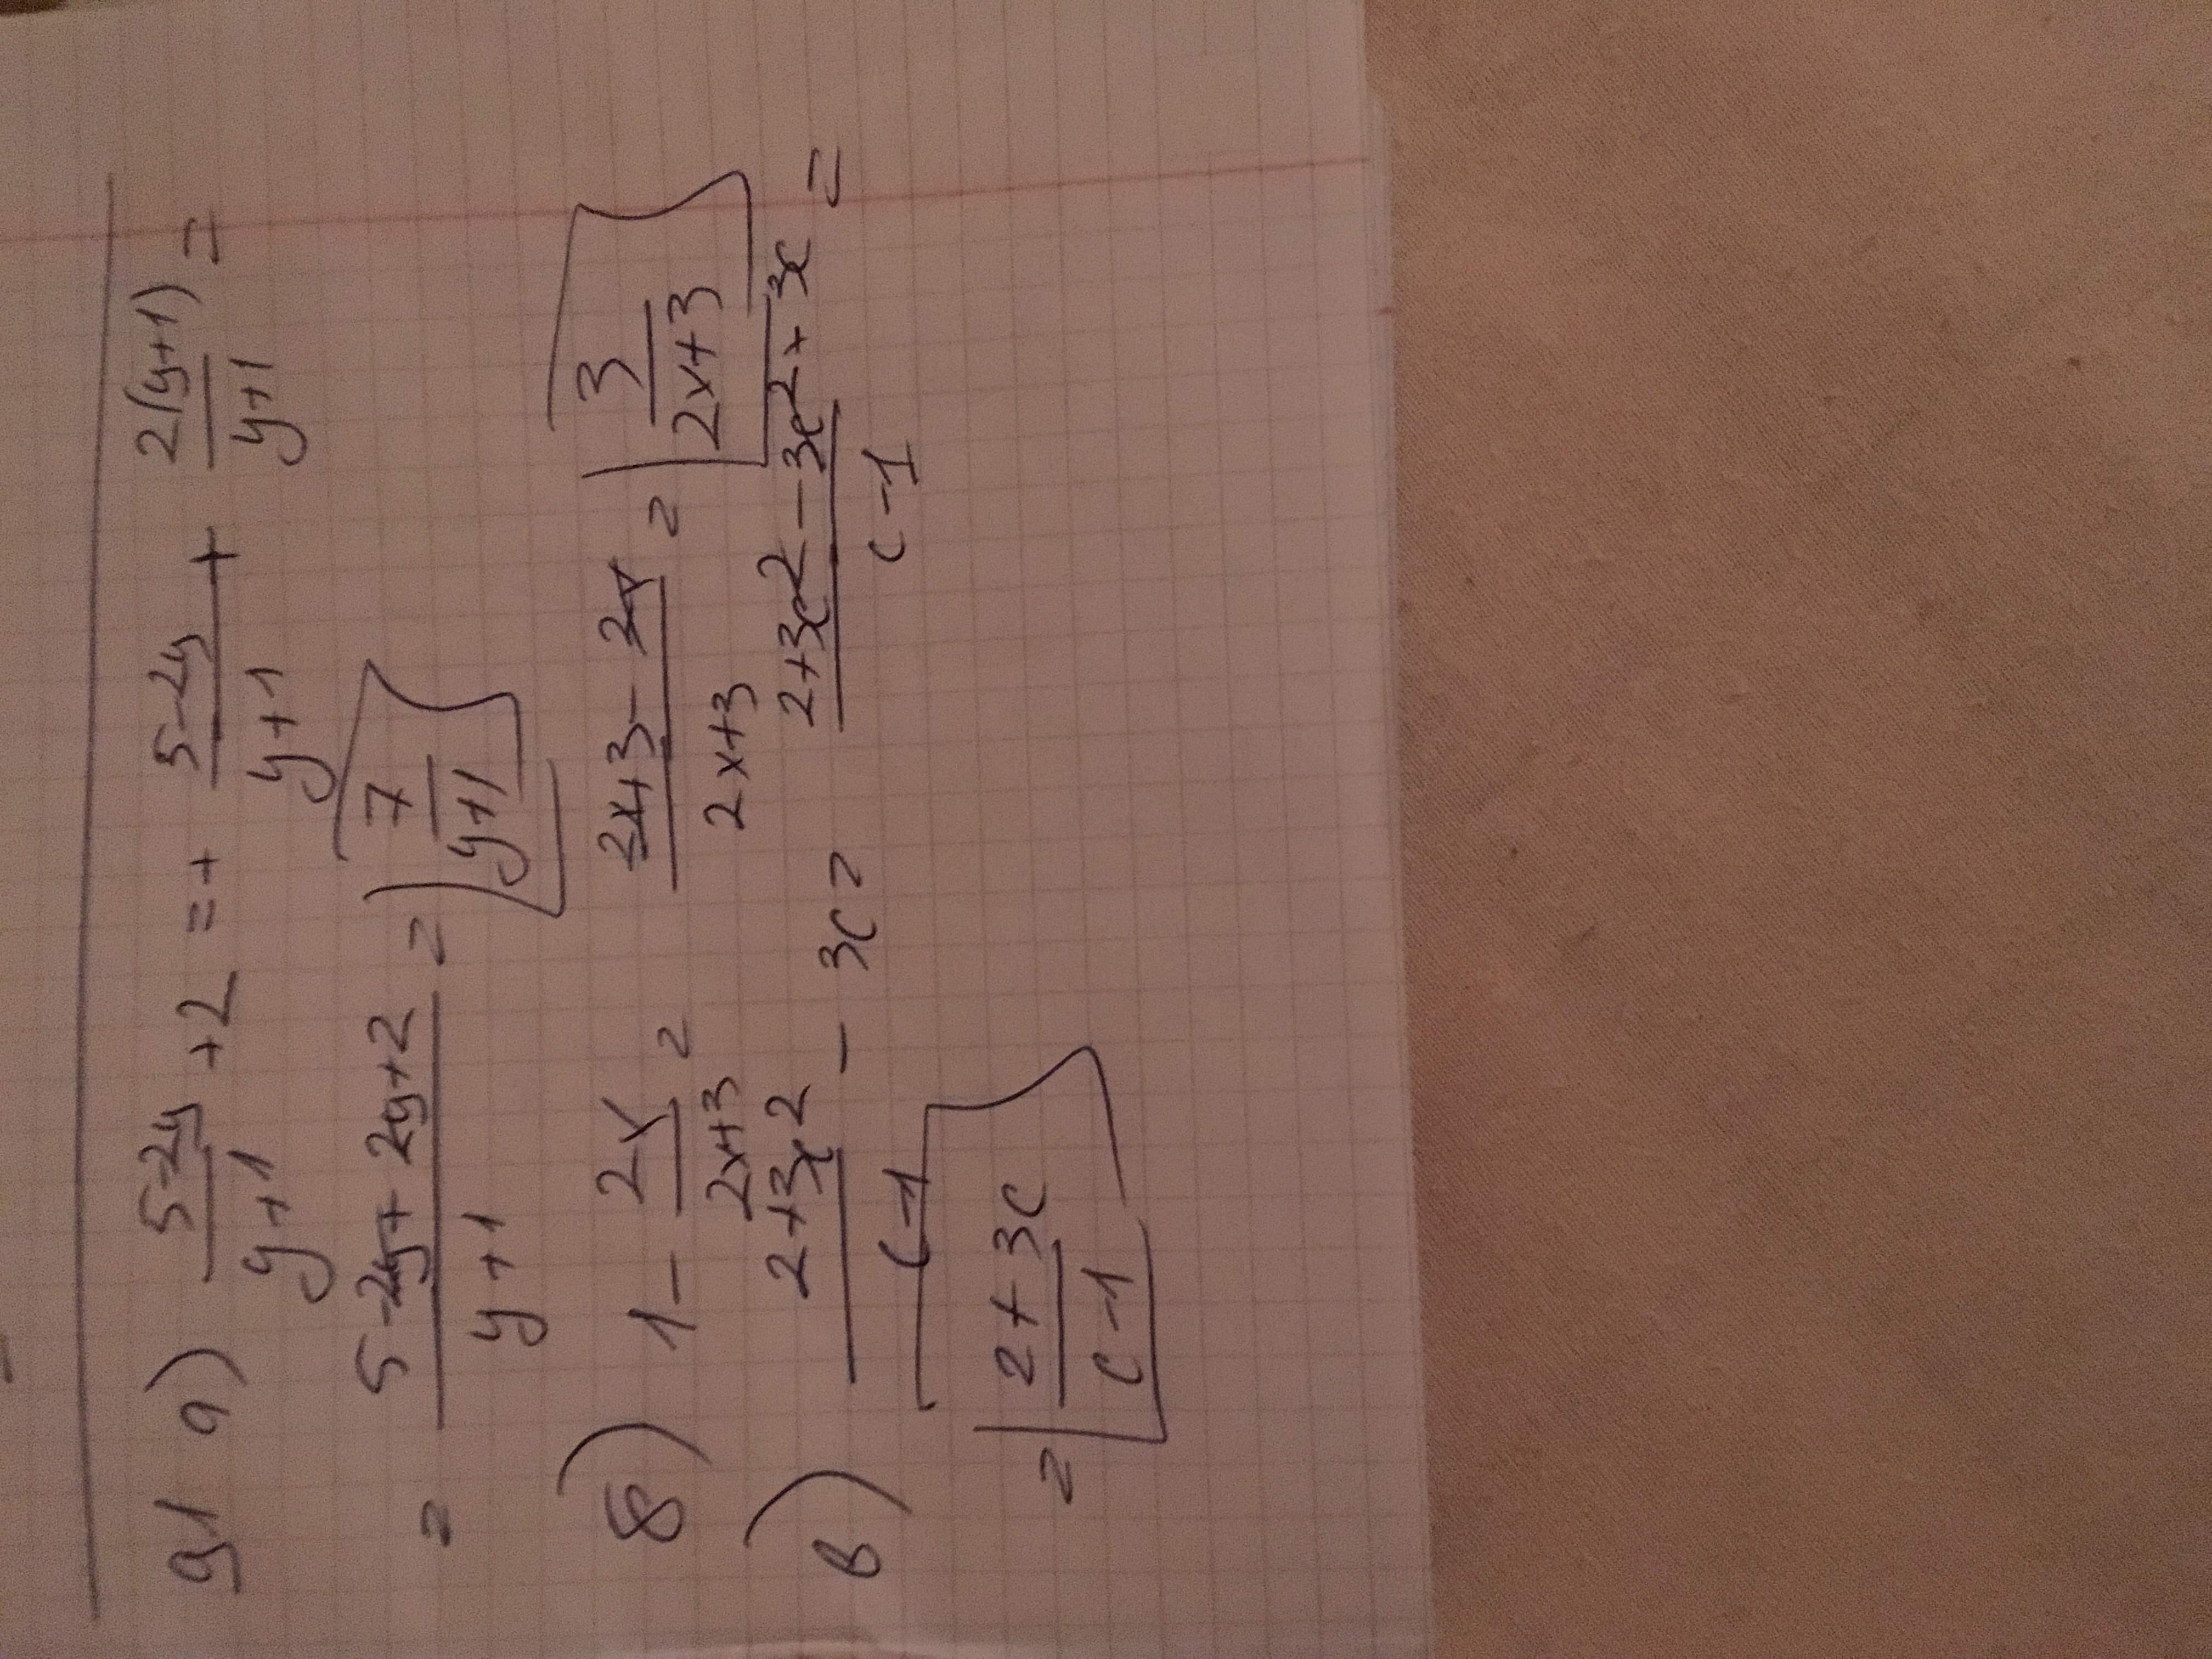 91 а) (5-2y)/(y+1) +2 = + (5-2y)/(y+1) + (2(y+1))/(y+1) =
= (5-2y+2y+2)/(y+1) = 7/(y+1)
б) 1 - 2x/(2x+3) = (2x+3-2x)/(2x+3) = 3/(2x+3)
в) (2+3c²)/(c-1) - 3c = (2+3c²-3c²+3c)/(c-1) =
= (2+3c)/(c-1)